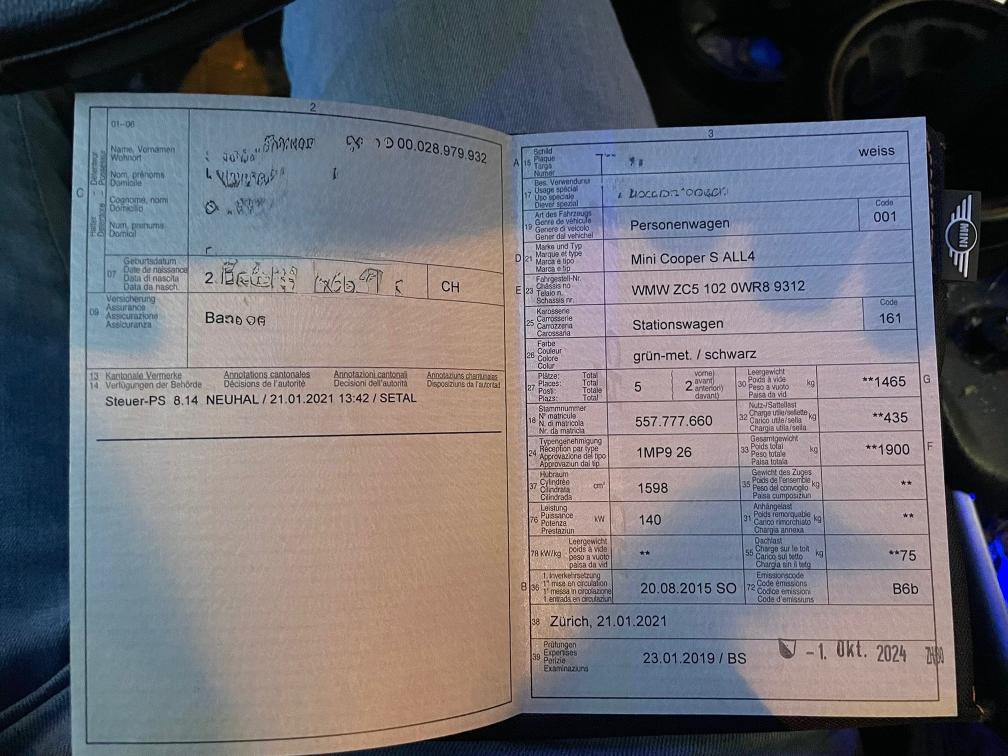 2
01-06
C
Halter
Détenteur
Detentore
Possessur
Name, Vornamen
Wohnort
Nom, prénoms
Domicile
Cognome, nomi
Domicilio
Num, prenums
Domicil
00.028.979.932
07
Geburtsdatum
Date de naissance
Data di nascita
Data da nasch.
2.
CH
09
Versicherung
Assurance
Assicurazione
Assicuranza
13 Kantonale Vermerke Annotations cantonales Annotazioni cantonali Annotaziuns chantunalas
14 Verfügungen der Behörde Décisions de l'autorité Decisioni dell'autorità Disposiziuns da l'autoritad
Steuer-PS 8.14 NEUHAL / 21.01.2021 13:42 / SETAL
3
A 15
Schild
Plaque
Targa
Numer
weiss
17
Bes. Verwendung
Usage spécial
Uso speciale
Diever spezial
19
Art des Fahrzeugs
Genre de véhicule
Genere di veicolo
Gener dal vehichel
Personenwagen
Code
001
D 21
Marke und Typ
Marque et type
Marca e tipo
Marca e tip
Mini Cooper S ALL4
E 23
Fahrgestell-Nr.
Châssis no
Telaio n.
Schassis nr.
WMW ZC5 102 0WR8 9312
25
Karosserie
Carrosserie
Carrozzeria
Carossaria
Stationswagen
Code
161
26
Farbe
Couleur
Colore
Colur
grün-met. / schwarz
27
Plätze: Total
Places: Total
Posti: Totale
Plazs: Total
5
( 2 vorne)
avant)
anteriori)
davant)
30
Leergewicht
Poids à vide
Peso a vuoto
Paisa da vid
kg
**1465
G
18
Stammnummer
N° matricule
N. di matricola
Nr. da matricla
557.777.660
32
Nutz-/Sattellast
Charge utile/sellette
Carico utile/sella
Chargia utila/sella
kg
**435
24
Typengenehmigung
Réception par type
Approvazione del tipo
Approvaziun dal tip
1MP9 26
33
Gesamtgewicht
Poids total
Peso totale
Paisa totala
kg
**1900
F
37
Hubraum
Cylindrée
Cilindrata
Cilindrada
cm³
1598
35
Gewicht des Zuges
Poids de l'ensemble
Peso del convoglio
Paisa cumposiziun
kg
**
76
Leistung
Puissance
Potenza
Prestaziun
kW
140
31
Anhängelast
Poids remorquable
Carico rimorchiato
Chargia annexa
kg
**
78 kW/kg
Leergewicht
poids à vide
peso a vuoto
paisa da vid
**
55
Dachlast
Charge sur le toit
Carico sul tetto
Chargia sin il tetg
kg
**75
B 36
1. Inverkehrsetzung
1re mise en circulation
1a messa in circolazione
1. entrada en circulaziun
20.08.2015 SO
72
Emissionscode
Code émissions
Codice emissioni
Code d'emissiuns
B6b
38
Zürich, 21.01.2021
39
Prüfungen
Expertises
Perizie
Examinaziuns
23.01.2019 / BS
-1. Okt. 2024
MINI